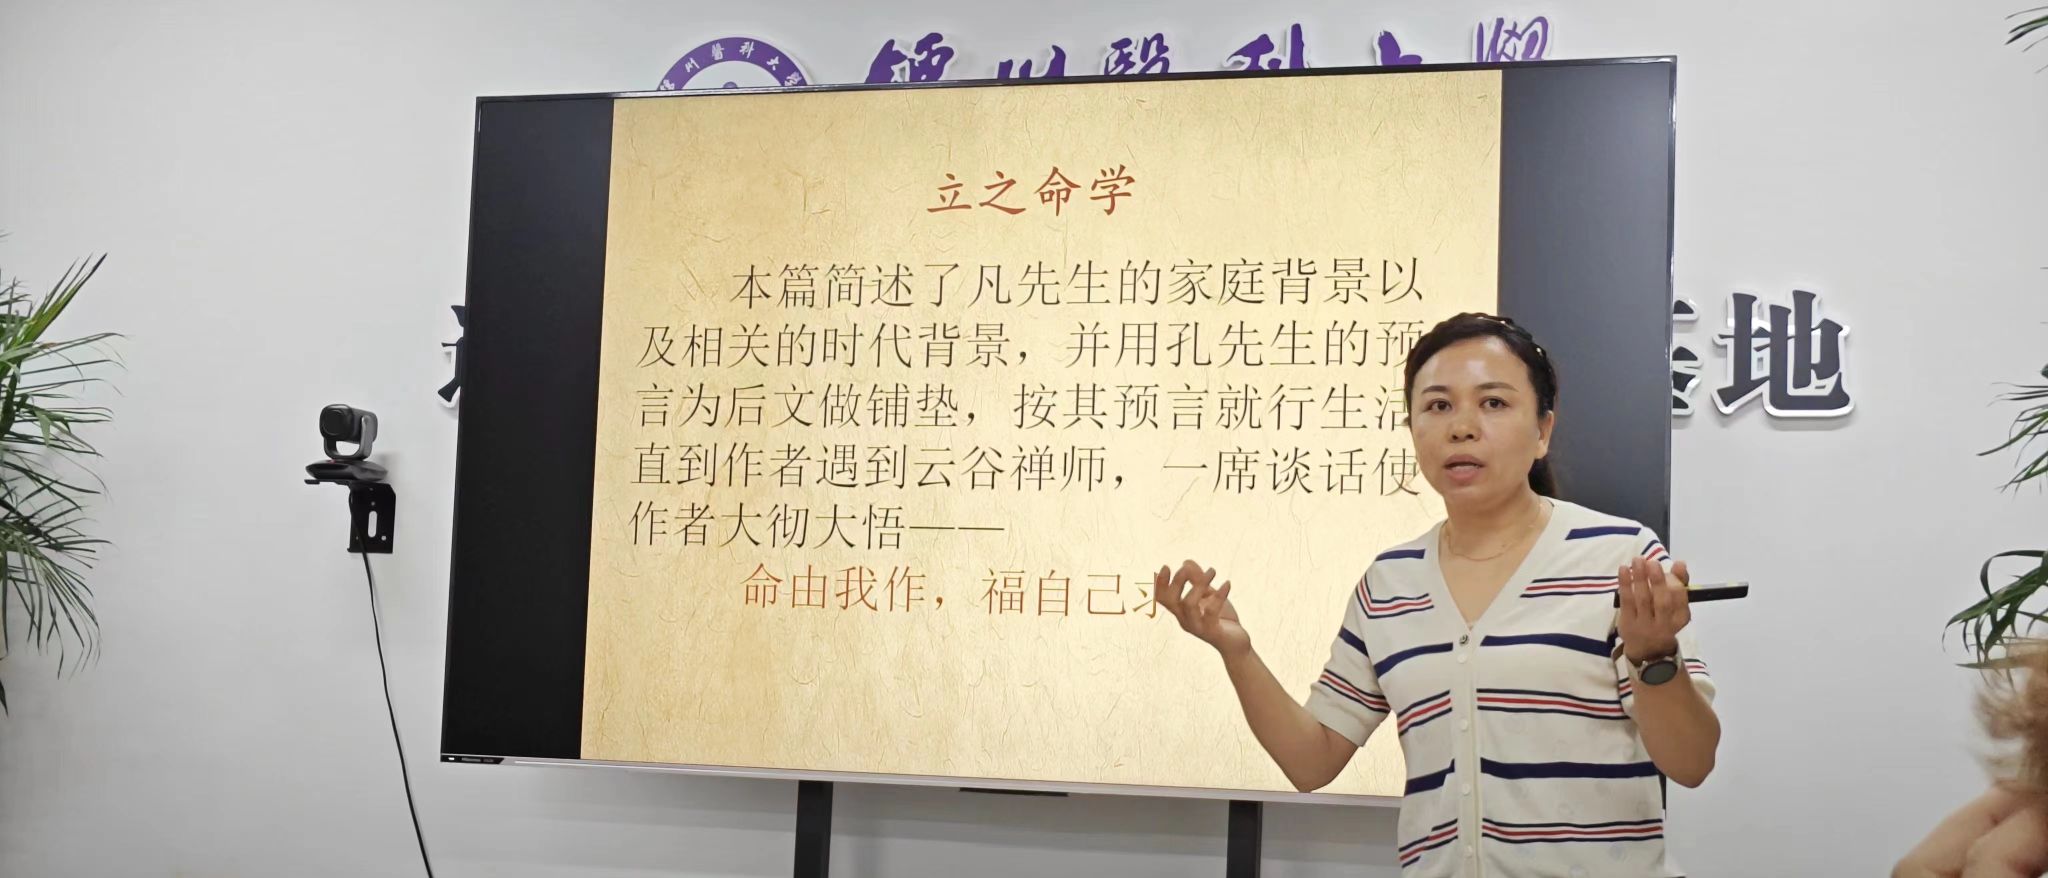 州醫科大
州醫科大
立之命学
本篇简述了凡先生的家庭背景以
及相关的时代背景，并用孔先生的预
言为后文做铺垫，按其预言就行生活
直到作者遇到云谷禅师，一席谈话使
作者大彻大悟——
命由我作，福自己求
基地
Hisense